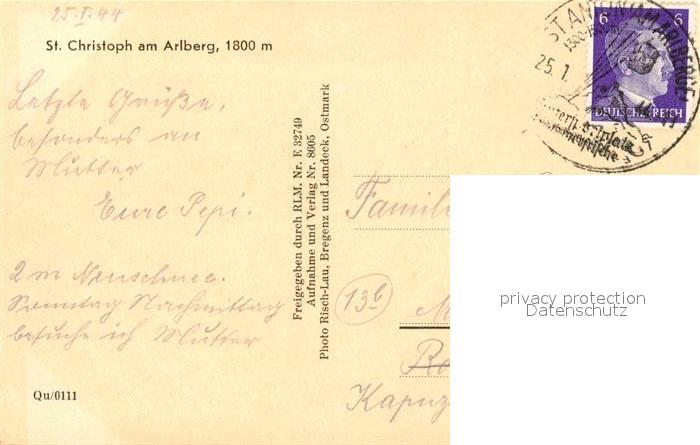 25.I.44
St. Christoph am Arlberg, 1800 m
Letzte Grüße,
besonders an
Mutter
Eure Pepi.
2 m Neuschnee.
Sonntag Nachmittag
besuche ich Mutter
Qu/0111
Freigegeben durch RLM. Nr. E 32749
Aufnahme und Verlag Nr. 8605
Photo Risch-Lau, Bregenz und Landeck, Ostmark
ST. ANTON AM ARLBERG
25.1.
6 6
DEUTSCHES REICH
Famil
13b
M
Ro
Kapuz
privacy protection
Datenschutz